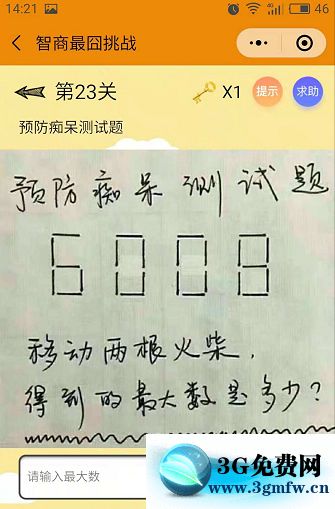 14:21 46
智商最囧挑战
第23关 X1 提示 求助
预防痴呆测试题
预防痴呆测试题
6008
移动两根火柴,
得到的最大数是多少?
请输入最大数
3G免费网
www.3gmfw.cn